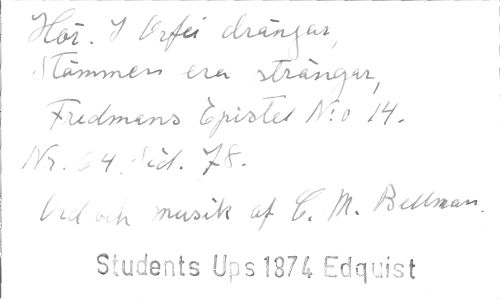 Hör. I Orfei drängar,
Stämmen era strängar,
Fredmans Epistel N:o 14.
Nr. 64. Sid. 78.
Ord och musik af C. M. Bellman.
Students Ups 1874 Edquist